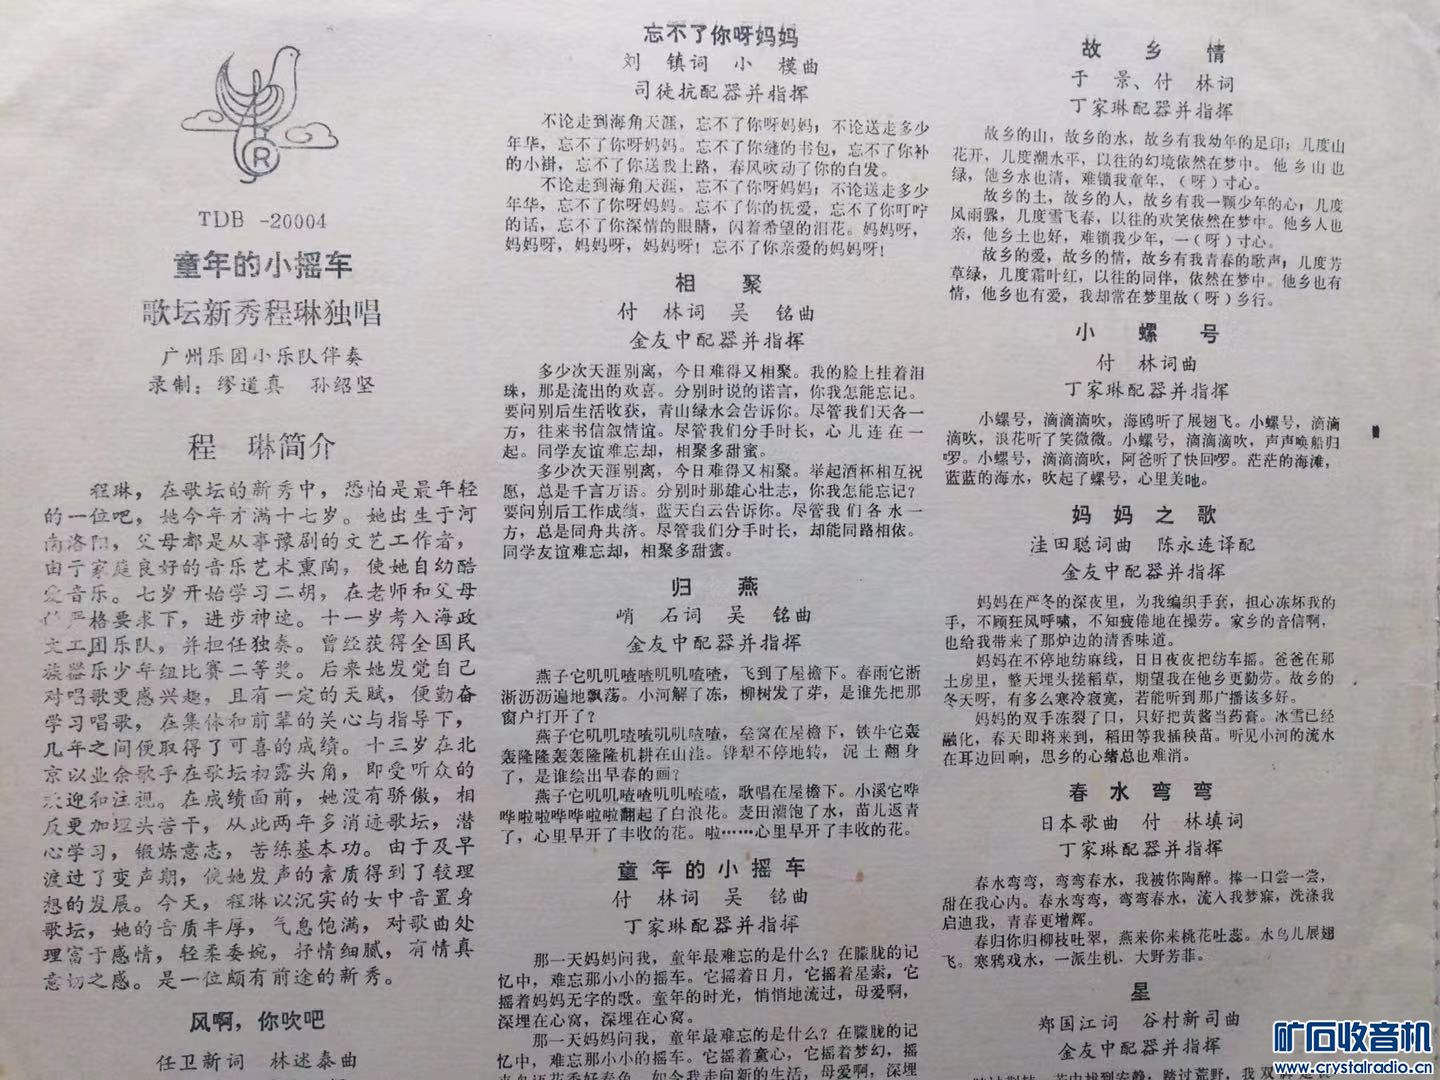 R
TDB -20004
童年的小摇车
歌坛新秀程琳独唱
广州乐团小乐队伴奏
录制：缪道真 孙绍坚
程 琳简介
程琳，在歌坛的新秀中，恐怕是最年轻
的一位吧，她今年才满十七岁。她出生于河
南洛阳，父母都是从事豫剧的文艺工作者，
由于家庭良好的音乐艺术熏陶，使她自幼酷
爱音乐。七岁开始学习二胡，在老师和父母
的严格要求下，进步神速。十一岁考入海政
文工团乐队，并担任独奏。曾经获得全国民
族器乐少年组比赛二等奖。后来她发觉自己
对唱歌更感兴趣，且有一定的天赋，便勤奋
学习唱歌，在集体和前辈的关心与指导下，
几年之间便取得了可喜的成绩。十三岁在北
京以业余歌手在歌坛初露头角，即受听众的
欢迎和注视。在成绩面前，她没有骄傲，相
反更加埋头苦干，从此两年多消迹歌坛，潜
心学习，锻炼意志，苦练基本功。由于及早
渡过了变声期，使她发声的素质得到了较理
想的发展。今天，程琳以沉实的女中音置身
歌坛，她的音质丰厚，气息饱满，对歌曲处
理富于感情，轻柔委婉，抒情细腻，有情真
意切之感。是一位颇有前途的新秀。
风啊，你吹吧
任卫新词 林迷泰曲
忘不了你呀妈妈
刘 镇词 小 模曲
司徒抗配器并指挥
不论走到海角天涯，忘不了你呀妈妈；不论送走多少
年华，忘不了你呀妈妈。忘不了你缝的书包，忘不了你补
的小褂，忘不了你送我上路，春风吹动了你的白发。
不论走到海角天涯，忘不了你呀妈妈；不论送走多少
年华，忘不了你呀妈妈。忘不了你的抚爱，忘不了你叮咛
的话，忘不了你深情的眼睛，闪着希望的泪花。妈妈呀，
妈妈呀，妈妈呀，妈妈呀！忘不了你亲爱的妈妈呀！
相 聚
付 林词 吴 铭曲
金友中配器并指挥
多少次天涯别离，今日难得又相聚。我的脸上挂着泪
珠，那是流出的欢喜。分别时说的诺言，你我怎能忘记。
要问别后生活收获，青山绿水会告诉你。尽管我们天各一
方，往来书信叙情谊。尽管我们分手时长，心儿连在一
起。同学友谊难忘却，相聚多甜蜜。
多少次天涯别离，今日难得又相聚。举起酒杯相互祝
愿，总是千言万语。分别时那雄心壮志，你我怎能忘记？
要问别后工作成绩，蓝天白云告诉你。尽管我们各水一
方，总是同舟共济。尽管我们分手时长，却能同路相依。
同学友谊难忘却，相聚多甜蜜。
归 燕
峭 石词 吴 铭曲
金友中配器并指挥
燕子它叽叽喳喳叽叽喳喳，飞到了屋檐下。春雨它淅
淅沥沥遍地飘荡。小河解了冻，柳树发了芽，是谁先把那
窗户打开了？
燕子它叽叽喳喳叽叽喳喳，垒窝在屋檐下，铁牛它轰
轰隆隆轰轰隆隆机耕在山洼。铧犁不停地转，沉土翻身
了，是谁绘出早春的画？
燕子它叽叽喳喳叽叽喳喳，歌唱在屋檐下。小溪它哗
哗啦啦哗哗啦啦翻起了白浪花。麦田灌饱了水，苗儿返青
了，心里早开了丰收的花。啦……心里早开了丰收的花。
童年的小摇车
付 林词 吴 铭曲
丁家琳配器并指挥
那一天妈妈问我，童年最难忘的是什么？在朦胧的记
忆中，难忘那小小的摇车。它摇着日月，它摇着星索，它
摇着妈妈无字的歌。童年的时光，悄悄地流过，母爱啊，
深埋在心窝，深埋在心窝。
那一天妈妈问我，童年最难忘的是什么？在朦胧的记
忆中，难忘那小小的摇车。它摇着童心，它摇着梦幻，摇
来鸟语花香好春色。如今我走向新的生活，母爱啊，深埋
故 乡 情
于 景、付 林词
丁家琳配器并指挥
故乡的山，故乡的水，故乡有我幼年的足印；几度山
花开，几度潮水平，以往的幻境依然在梦中。他乡山也
绿，他乡水也清，难锁我童年，（呀）寸心。
故乡的土，故乡的人，故乡有我一颗少年的心；几度
风雨骤，几度雪飞春，以往的欢笑依然在梦中。他乡人也
亲，他乡土也好，难锁我少年，一（呀）寸心。
故乡的爱，故乡的情，故乡有我青春的歌声；几度芳
草绿，几度霜叶红，以往的同伴，依然在梦中。他乡也有
情，他乡也有爱，我却常在梦里故（呀）乡行。
小 螺 号
付 林词曲
丁家琳配器并指挥
小螺号，滴滴滴吹，海鸥听了展翅飞。小螺号，滴滴
滴吹，浪花听了笑微微。小螺号，滴滴滴吹，声声唤船归
啰。小螺号，滴滴滴吹，阿爸听了快回啰。茫茫的海滩，
蓝蓝的海水，吹起了螺号，心里美吔。
妈妈之歌
洼田聪词曲 陈永连译配
金友中配器并指挥
妈妈在严冬的深夜里，为我编织手套，担心冻坏我的
手，不顾狂风呼啸，不知疲倦地在操劳。家乡的音信啊，
也给我带来了那炉边的清香味道。
妈妈在不停地纺麻线，日日夜夜把纺车摇。爸爸在那
土房里，整天埋头搓稻草，期望我在他乡更勤劳。故乡的
冬天呀，有多么寒冷寂寞，若能听到那广播该多好。
妈妈的双手冻裂了口，只好把黄酱当药膏。冰雪已经
融化，春天即将来到，稻田等我插秧苗。听见小河的流水
在耳边回响，思乡的心绪总也难消。
春水弯弯
日本歌曲 付 林填词
丁家琳配器并指挥
春水弯弯，弯弯春水，我被你陶醉。捧一口尝一尝，
甜在我心内。春水弯弯，弯弯春水，流入我梦寐，洗涤我
启迪我，青春更增辉。
春归你归柳枝吐翠，燕来你来桃花吐蕊。水鸟儿展翅
飞。寒鸦戏水，一派生机，大野芳菲。
星
郑国江词 谷村新司曲
金友中配器并指挥
矿石收音机
www.crystalradio.cn